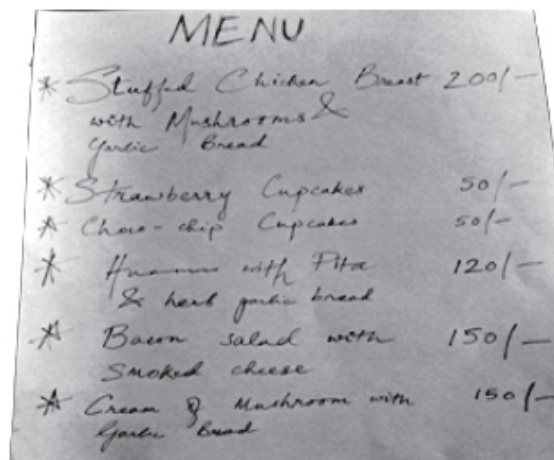 MENU
* Stuffed Chicken Breast 200/-
with Mushrooms &
Garlic Bread
* Strawberry Cupcakes 50/-
* Choco-chip Cupcakes 50/-
* Hummus with Pita 120/-
& herb garlic bread
* Bacon salad with 150/-
Smoked cheese
* Cream of Mushroom with 150/-
Garlic Bread